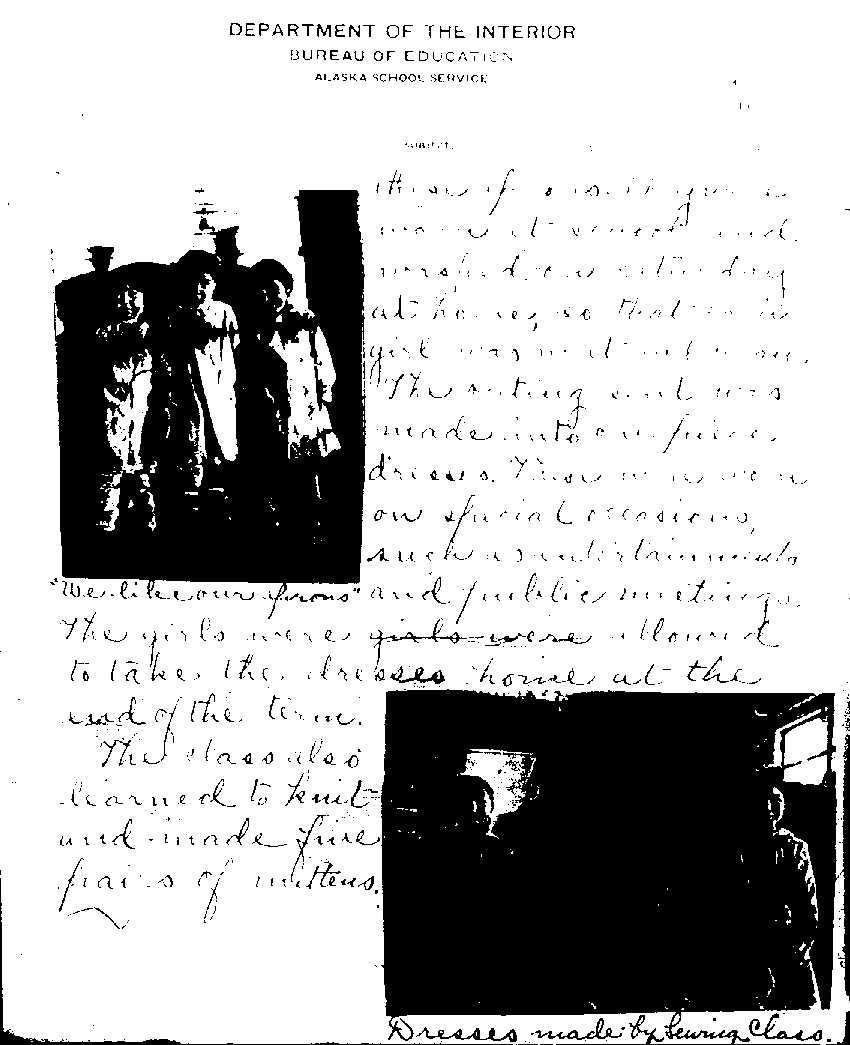 DEPARTMENT OF THE INTERIOR
BUREAU OF EDUCATION
ALASKA SCHOOL SERVICE
SUBJECT:
these
worn at school and
washed on Saturday
at home, so that
girl was neat
The outing was
made into one piece
dresses. These were worn
on special occasions,
such as entertainments
and public meetings.
"We like our aprons"
The girls were girls were allowed
to take the dresses home at the
end of the term.
The class also
learned to knit
and made five
pairs of mittens.
Dresses made by Sewing Class.